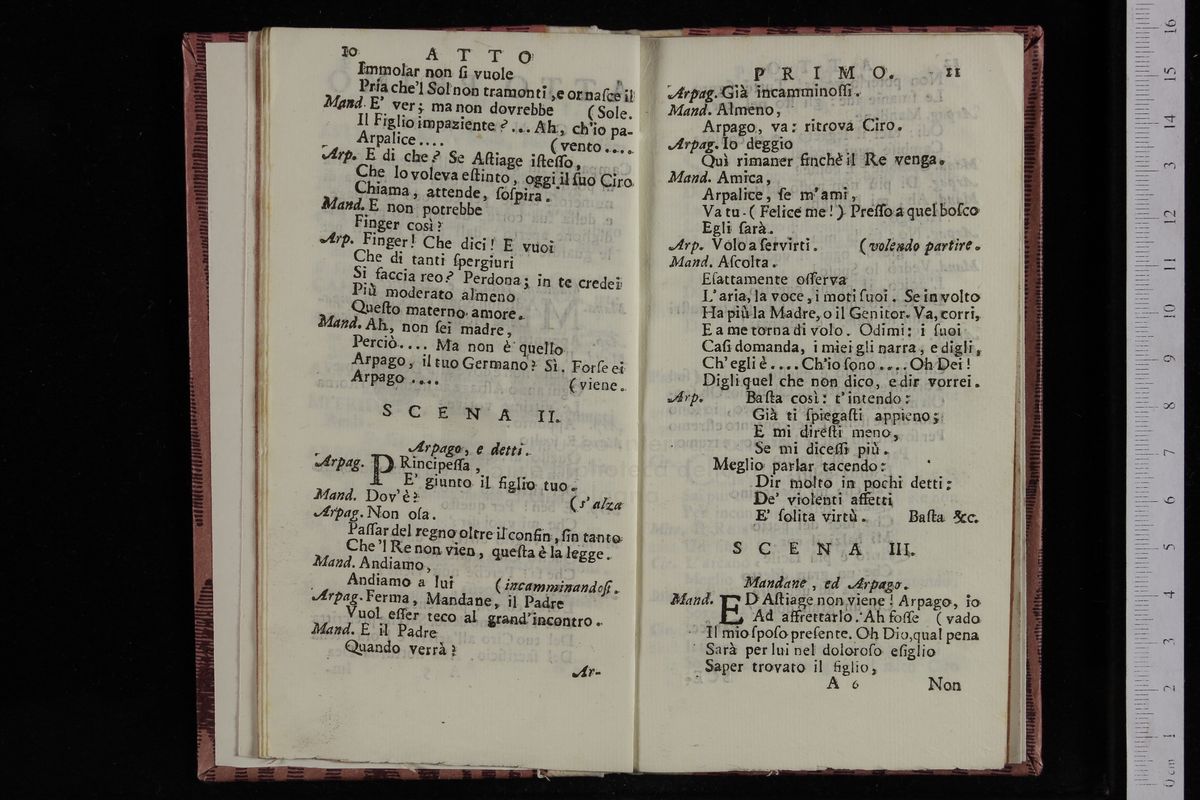 10 ATTO
Immolar non ſi vuole
Pria che'l Sol non tramonti, e or naſce il
Mand. E' ver; ma non dovrebbe (Sole.
Il Figlio impaziente?... Ah, ch'io pa-
Arpalice.... (vento....
Arp. E di che? Se Aſtiage iſteſſo,
Che lo voleva eſtinto, oggi il ſuo Ciro
Chiama, attende, ſoſpira.
Mand. E non potrebbe
Finger così?
Arp. Finger! Che dici! E vuoi
Che di tanti ſpergiuri
Si faccia reo? Perdona; in te credei
Più moderato almeno
Queſto materno amore.
Mand. Ah, non ſei madre,
Perciò.... Ma non è quello
Arpago, il tuo Germano? Sì. Forſe ei
Arpago.... (viene.
SCENA II.
Arpago, e detti.
Arpag. PRincipeſſa,
E' giunto il figlio tuo.
Mand. Dov'è? (s'alza
Arpag. Non oſa.
Paſſar del regno oltre il confin, ſin tanto
Che'l Re non vien, queſta è la legge.
Mand. Andiamo,
Andiamo a lui (incamminandoſi.
Arpag. Ferma, Mandane, il Padre
Vuol eſſer teco al grand'incontro.
Mand. E il Padre
Quando verrà?
Ar-
PRIMO. 11
Arpag. Già incamminoſſi.
Mand. Almeno,
Arpago, va: ritrova Ciro.
Arpag. Io deggio
Quì rimaner finchè il Re venga.
Mand. Amica,
Arpalice, ſe m'ami,
Va tu. (Felice me!) Preſſo a quel boſco
Egli ſarà.
Arp. Volo a ſervirti. (volendo partire.
Mand. Aſcolta.
Eſattamente oſſerva
L'aria, la voce, i moti ſuoi. Se in volto
Ha più la Madre, o il Genitor. Va, corri,
E a me torna di volo. Odimi: i ſuoi
Caſi domanda, i miei gli narra, e digli,
Ch'egli è.... Ch'io ſono.... Oh Dei!
Digli quel che non dico, e dir vorrei.
Arp. Baſta così: t'intendo:
Già ti ſpiegaſti appieno;
E mi direſti meno,
Se mi diceſſi più.
Meglio parlar tacendo:
Dir molto in pochi detti:
De' violenti affetti
E' ſolita virtù. Baſta &c.
SCENA III.
Mandane, ed Arpago.
Mand. ED Aſtiage non viene! Arpago, io
Ad affrettarlo. Ah foſſe (vado
Il mio ſpoſo preſente. Oh Dio, qual pena
Sarà per lui nel doloroſo eſiglio
Saper trovato il figlio,
A 6 Non